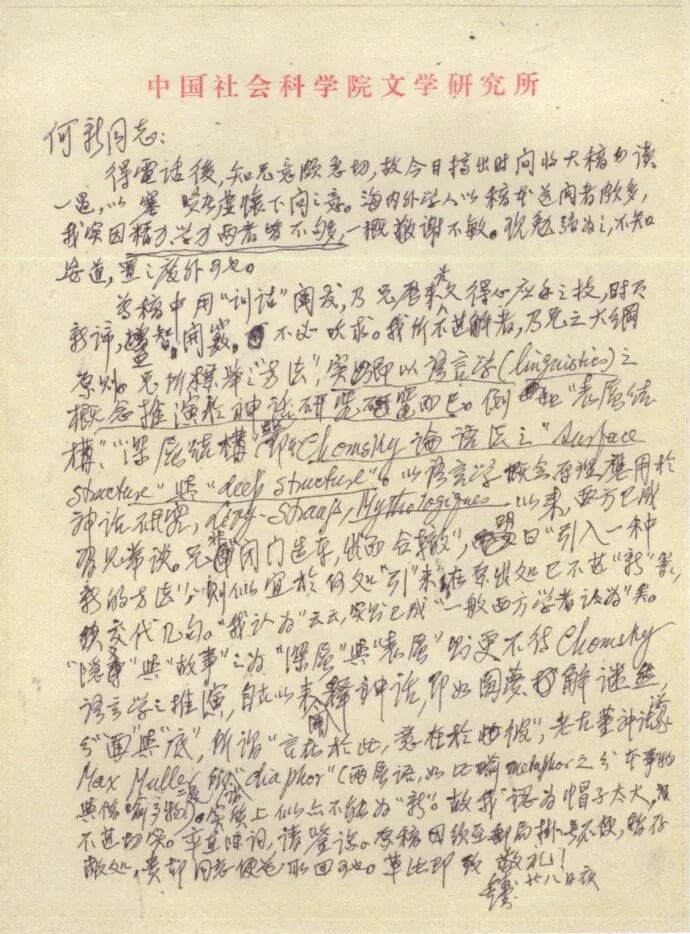 中国社会科学院文学研究所
何新同志：
得電话後，知兄意颇急切，故今日摘出时间收大稿匆读
一過，以塞 虚懷下问之意。海内外学人以稿本送阅者颇多，
我实因精力、学力两者皆不够，一概敬谢不敏。
置之度外可也。
尊稿中用“训诂”阐发，乃兄歷来得心应手之技，时有
新谛， 智開 不必吹求。我所不甚解者，乃兄之大綱
原则。兄所標举之“方法”，实即以语言学(linguistics)之
概念推演於神话研究而已。例如“表层结
構”、“深层結構”即Chomsky論语法之“surface
structure”與“deep structure”。以语言学概念原理應用於
神话研究，Levy-Strauss, Mythologiques 以来，西方已成
常谈。兄 “闭门造车，出而合辙”， 曰“引入一种
新的方法”，则似宜於何处“引”来，在原出处已不甚“新”矣，
须交代几句。“我认为”云云，实则已成“一般西方学者认为”矣。
“隐義”與“故事”之为“深层”與“表层”，则更不待Chomsky
语言学之推演，自古以来释神话，即如圆夢 解谜，
分“面”與“底”，所谓“言在於此，意在於彼”，老在董神话
Max Muller 所 “diaphor”(两层语，如比喻metaphor之分本事物
與借喻事物)。实质上似亦不能为“新”。故我認为帽子太大，
不甚切实。率直陈词，请鉴谅。原稿因 邮局掛号不便，暂存
敝处，贵部同志便还取回可也。草此即致 敬礼！
钱 廿八日夜